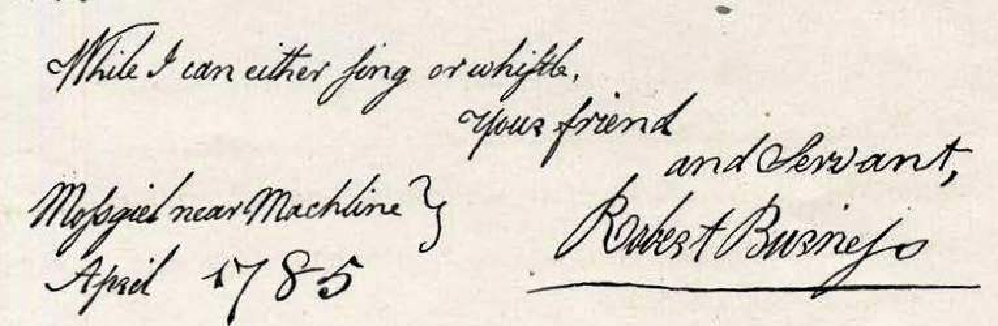 While I can either sing or whistle,
Your friend
and Servant,
Mossgiel near Machline }
April 1785
Robert Burness